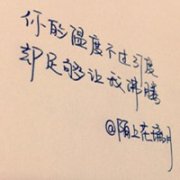 你的温度不过37度
却足够让我沸腾
@陌上花涧